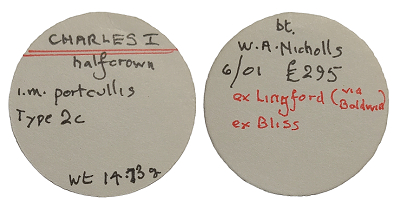 CHARLES I
halfcrown
i.m. portcullis
Type 2c
Wt 14.73g
bt.
W.A. Nicholls
6/01 £295
ex Lingford (via Baldwin)
ex Bliss